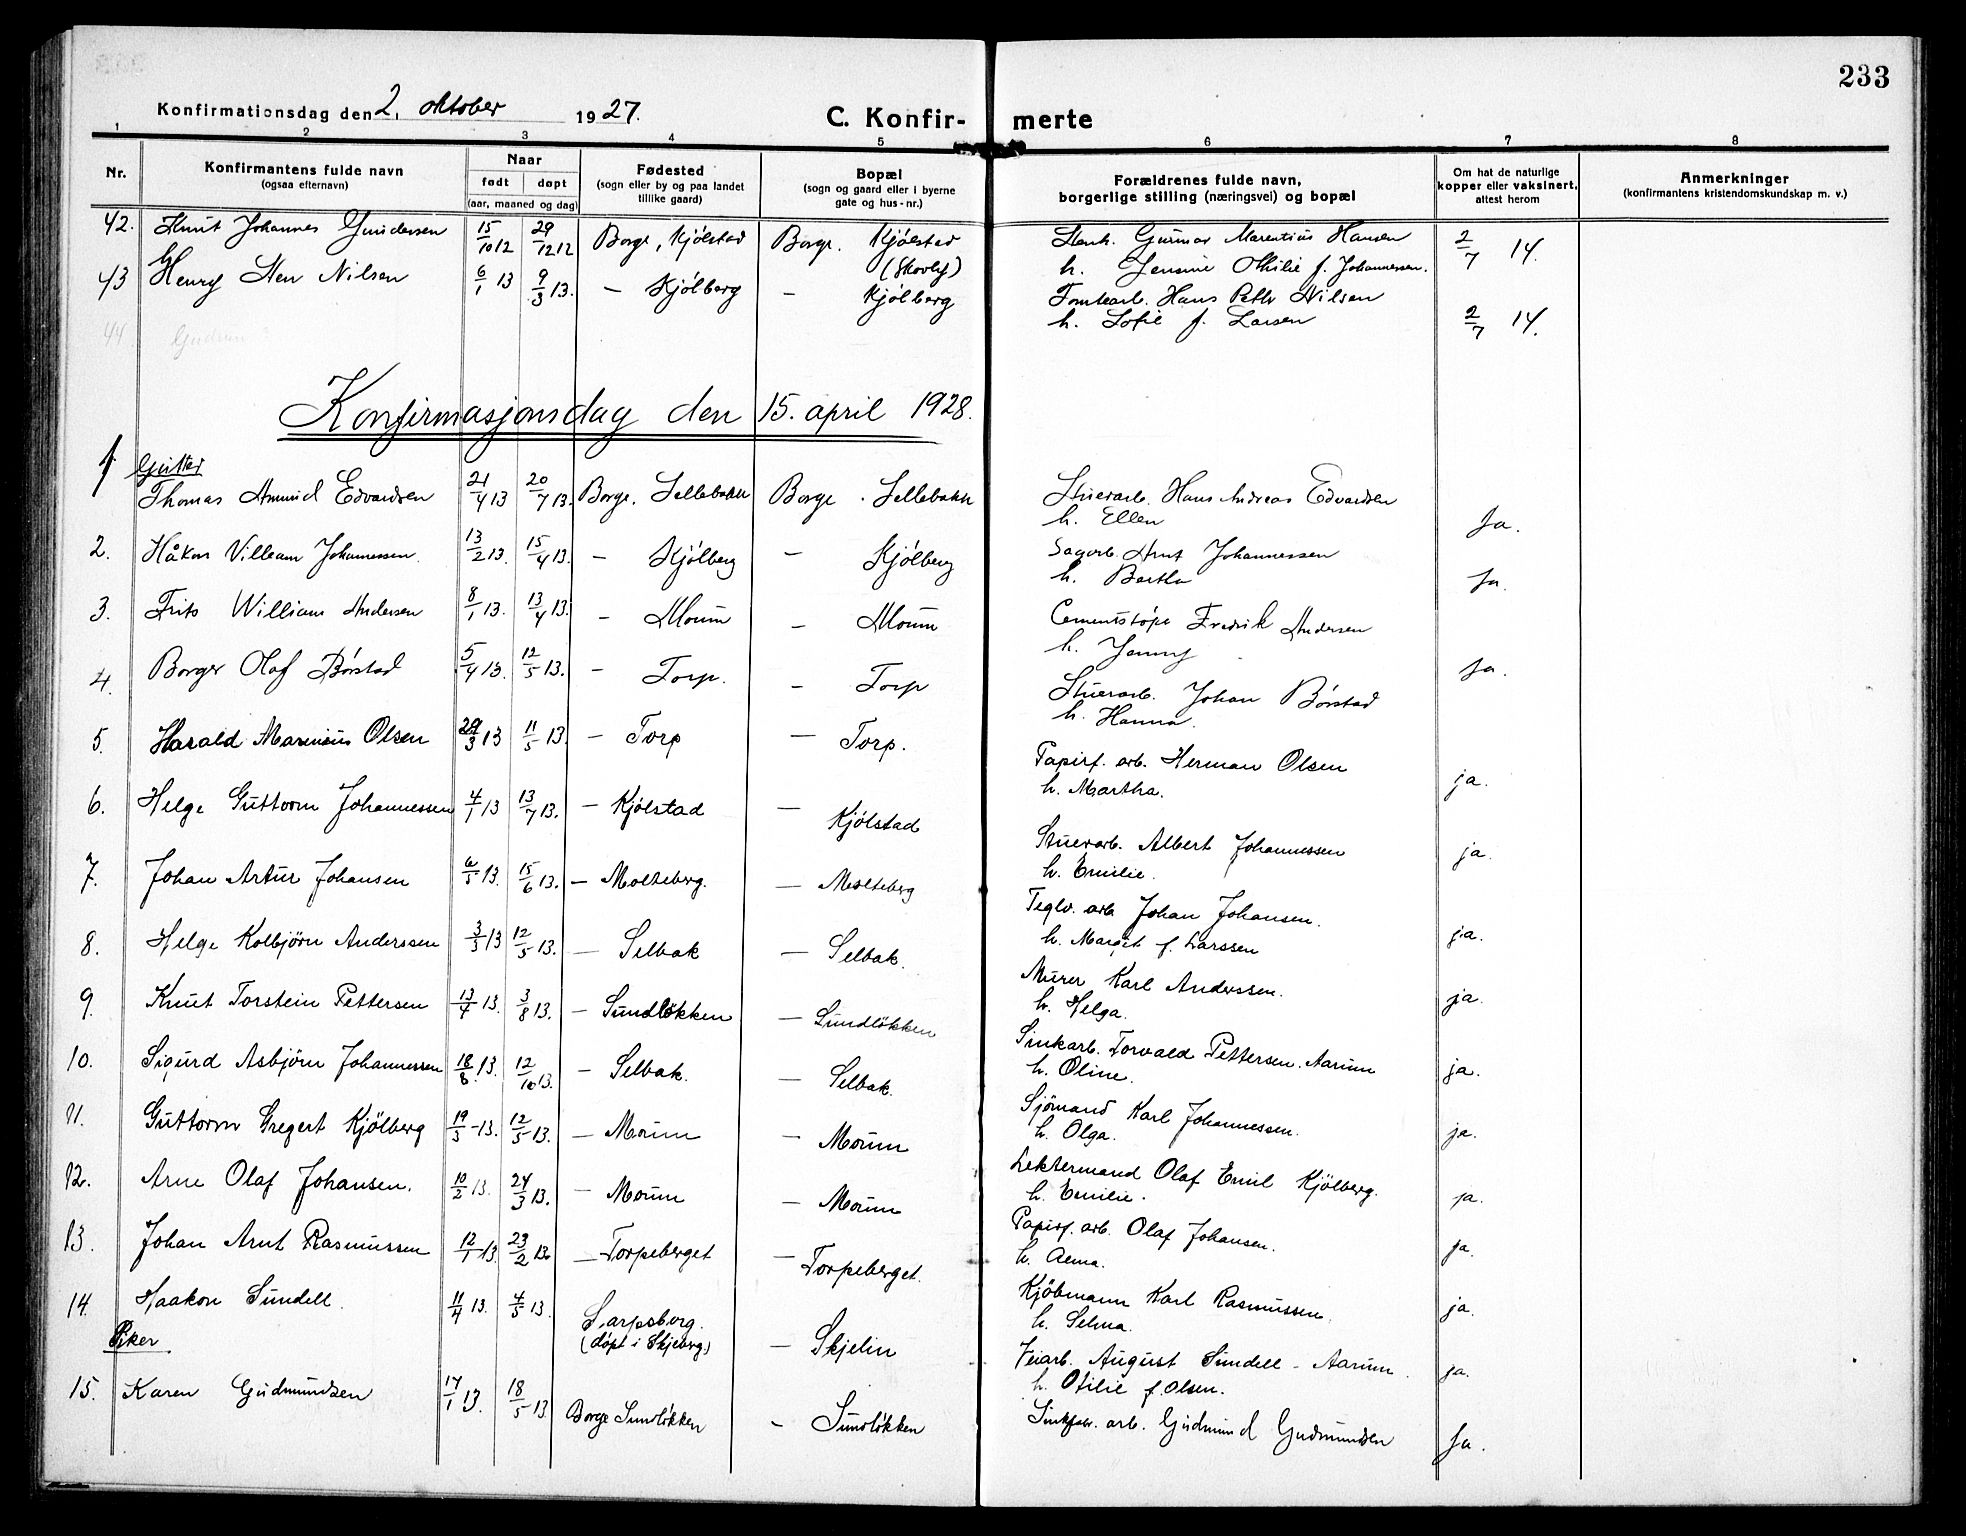 233
Konfirmationsdag den 2. oktober 1927.
C. Konfir- merte
1 2 3 4 5 6 7 8
Nr.
Konfirmantens fulde navn
(ogsaa efternavn)
Naar
født døpt
(aar, maaned og dag)
Fødested
(sogn eller by og paa landet
tillike gaard)
Bopæl
(sogn og gaard eller i byerne
gate og hus-nr.)
Forældrenes fulde navn,
borgerlige stilling (næringsvei) og bopæl
Om hat de naturlige
kopper eller vaksinert,
attest herom
Anmerkninger
(konfirmantens kristendomskundskap m. v.)
42. Knut Johannes Gundersen 15/10 12 29/12 12 Borge, Kjölstad Borge. Kjölstad Stenh. Gunnar Marentius Hansen 2/7 14.
(Skovly) h. Jensine Othilie f. Johannessen.
43 Henry Sten Nilsen 6/1 13 9/3 13. – Kjölberg – Kjölberg Tomtearb. Hans Petter Nilsen
h. Sofie f. Larsen 2/7 14.
44 Gudrun
Konfirmasjonsdag den 15. april 1928.
Gutter
1 Thomas Amund Edvardsen 21/4 13 20/7 13. Borge. Sellebakk Borge. Sellebakk Stuerarb. Hans Andreas Edvardsen
h. Ellen Ja.
2. Håkon Villeam Johannessen. 13/2 13. 15/4 13. – Kjölberg – Kjölberg Sagarb. Arnt Johannessen
h. Bertha Ja.
3. Frits William Andersen 8/1 13. 13/4 13. – Moum – Moum Cementstöper Fredrik Andersen
h. Jenny
4. Borger Olaf Börstad 5/4 13. 12/5 13. – Torp. – Torp Ja.
Stuerarb. Johan Börstad
h. Hanna.
5. Harald Marenius Olsen 29/3 13 11/5 13. – Torp – Torp. Papirf. arb. Herman Olsen
h. Martha. ja.
6. Helge Guttorm Johannessen 4/1 13 13/7 13. – Kjölstad – Kjölstad Stuerarb. Albert Johannessen
h. Emilie. ja.
7. Johan Artur Johansen 6/5 13. 15/6 13. – Molteberg. – Molteberg Teglv. arb Johan Johansen.
h. Margit f. Larssen ja.
8. Helge Kolbjörn Anderssen 3/3 13 12/5 13. – Selbak – Selbak. Murer Karl Anderssen.
h. Helga. ja.
9. Knut Torstein Pettersen 13/4 13. 3/8 13. – Sundlökken – Sundlökken Sinkarb. Torvald Pettersen. Aarum
h. Oline. ja.
10. Sigurd Asbjörn Johannessen 18/8. 13. 12/10 13. – Selbak. – Selbak. Sjömand Karl Johannessen.
h. Olga. ja.
11. Guttorm Gregert Kjölberg 19/3 -13. 12/5 -13. – Moum – Moum Lektermand Olaf Emil Kjölberg.
h. Emilie. ja.
12. Arne Olaf Johansen. 10/2 13. 24/3 13. – Moum – Moum Papirf. arb. Olaf Johansen.
h. Aema. ja.
13. Johan Arnt Rasmussen 12/1 13. 23/2 13. – Torpeberget – Torpeberget. Kjöbmann Karl Rasmussen.
h. Selma. ja.
14. Haakon Sundell. 11/4 13. 4/5 13. Sarpsborg.
(döpt i Skjeberg) – Skjelin Veiarb. August Sundell - Aarum.
h. Otilie f. Olsen. ja.
Piker
15. Karen Gudmundsen 17/1 13. 18/5 13 Borge Sundlökken – Sundlökken Sinkfabr. arb. Gudmund Gudmundsen Ja.